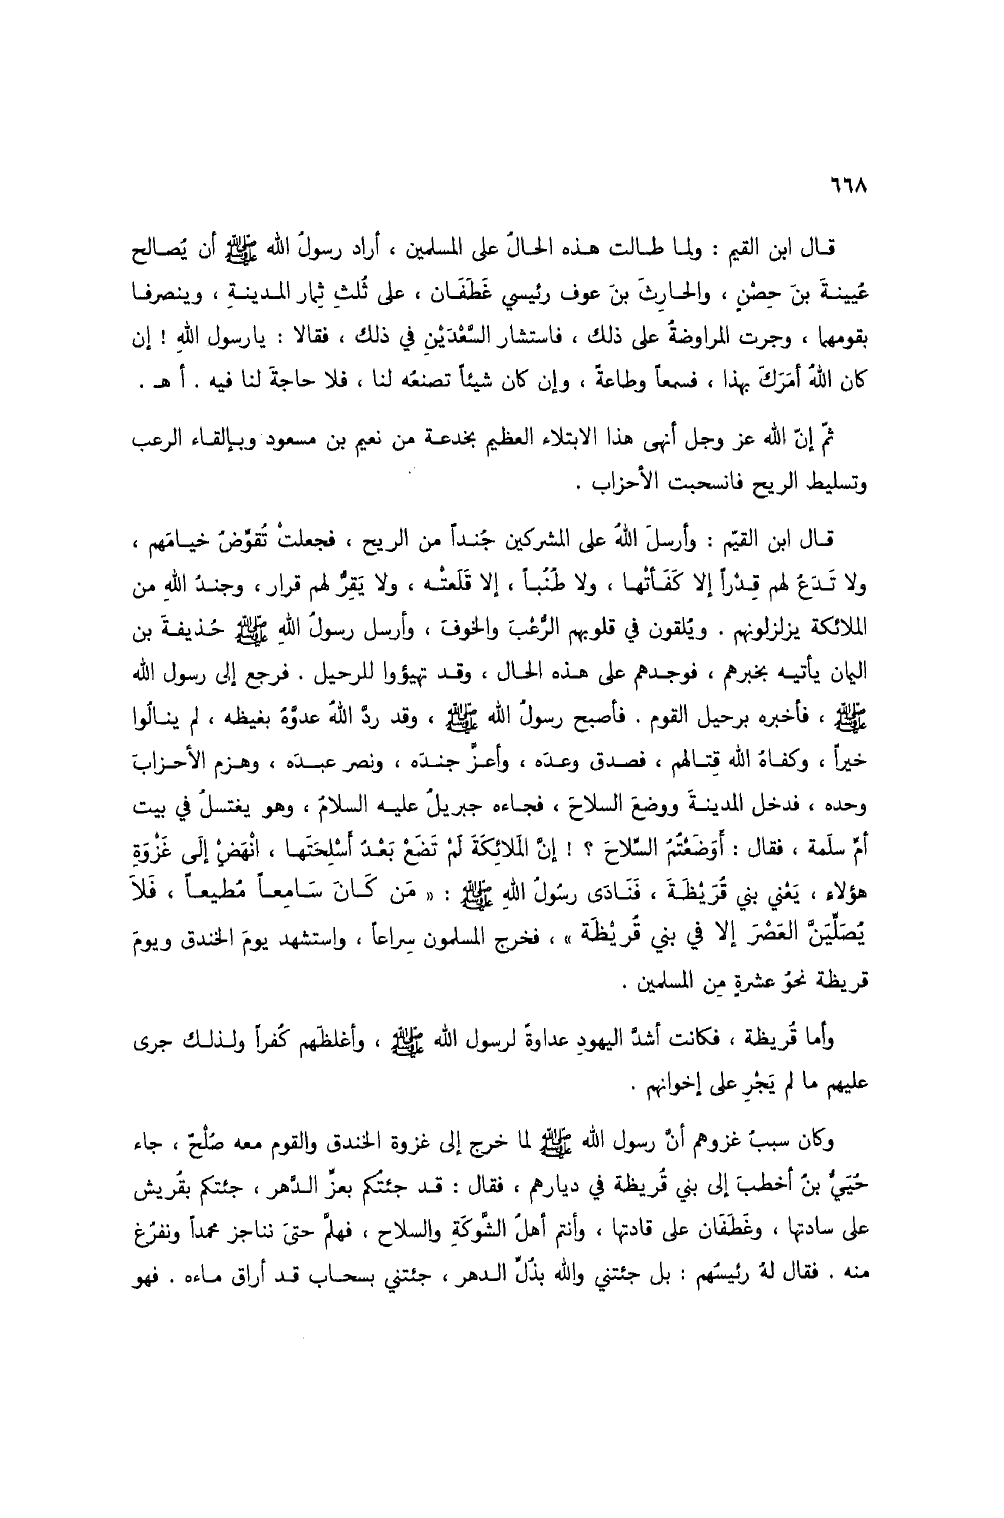 ٦٦٨
قـال ابن القيم : ولما طـالت هـذه الحـالُ على المسلمين ، أراد رسولُ الله ﷺ أن يُصـالح
عُيينـةَ بنَ حِصْنٍ ، والحـارِثَ بنَ عوف رئيسي غَطَفَـان ، على ثُلثِ ثِمار المـدينـةِ ، وينصرفـا
بقومهما ، وجرت المراوضةُ على ذلك ، فاستشار السَّعْدَيْنِ في ذلك ، فقالا : يارسول اللهِ ! إن
كان اللهُ أمَرَكَ بهذا ، فسمعاً وطاعةً ، وإن كان شيئاً تصنعُه لنا ، فلا حاجةَ لنا فيه . أ هـ .
ثمّ إنّ الله عز وجل أنهى هذا الابتلاء العظيم بخدعـة من نعيم بن مسعود وبـإلقـاء الرعب
وتسليط الريح فانسحبت الأحزاب .
قـال ابن القيّم : وأرسلَ اللهُ على المشركين جُنـداً من الريح ، فجعلتْ تُقوِّضُ خيـامَهم ،
ولا تَـدَعُ لهم قِـدْراً إلا كَفَـأتْهـا ، ولا طُنُبـاً ، إلا قَلَعتْـه ، ولا يَقِرُّ لهم قرار ، وجندُ اللهِ من
الملائكة يزلزلونهم . ويُلقون في قلوبهم الرُّعْبَ والخوفَ ، وأرسل رسولُ اللهِ ﷺ حُـذيفـةَ بن
اليمان يأتيـه بخبرهم ، فوجـدهم على هـذه الحـال ، وقـد تهيؤوا للرحيل . فرجع إلى رسول الله
ﷺ ، فأخبره برحيل القوم . فأصبح رسولُ الله ﷺ ، وقد ردَّ اللهُ عدوَّهُ بغيظه ، لم ينـالُوا
خيراً ، وكفـاهُ الله قِتـالهم ، فصـدق وعـدَه ، وأعـزَّ جنـدَه ، ونصر عبـدَه ، وهـزم الأحـزابَ
وحده ، فدخل المدينـةَ ووضعَ السلاحَ ، فجـاءه جبريلُ عليـه السلامُ ، وهو يغتسلُ في بيت
أمِّ سلَمة ، فقال : أَوَضَعْتُمُ السِّلاحَ ؟ ! إنَّ المَلائِكَةَ لَمْ تَضَعْ بَعْـدُ أَسْلِحَتَهـا ، انْهَضْ إلَى غَزْوَةِ
هؤلاء ، يَعْني بني قُرَيْظَـةَ ، فَنَـادَى رسُولُ اللهِ ﷺ : « مَن كَـانَ سَـامِعـاً مُطيعـاً ، فَلاَ
يُصَلِّيَنَّ العَصْرَ إلا في بني قُريْظَة » ، فخرج المسلمون سِراعاً ، واستشهد يومَ الخندق ويومَ
قريظة نحوُ عشرةٍ مِن المسلمين .
وأما قُريظة ، فكانت أشدَّ اليهودِ عداوةً لرسول الله ﷺ ، وأغلظَهم كُفراً ولـذلـك جرى
عليهم ما لم يَجْرِ على إخوانهم .
وكان سببُ غزوهم أنَّ رسول الله ﷺ لما خرج إلى غزوة الخندق والقوم معه صُلْحٌ ، جاء
حُيَيُّ بنُ أخطبَ إلى بني قُريظة في ديارهم ، فقال : قـد جئتُكم بعزِّ الـدَّهر ، جئتكم بقُريش
على سادتها ، وغَطَفَان على قادتها ، وأنتم أهلُ الشَّوكَةِ والسلاح ، فهلمَّ حتىَ نناجز محمداً ونفرُغ
منه . فقال لهُ رئيسُهم : بل جئتني والله بذُلِّ الـدهر ، جئتني بسحـاب قـد أراق مـاءه . فهو